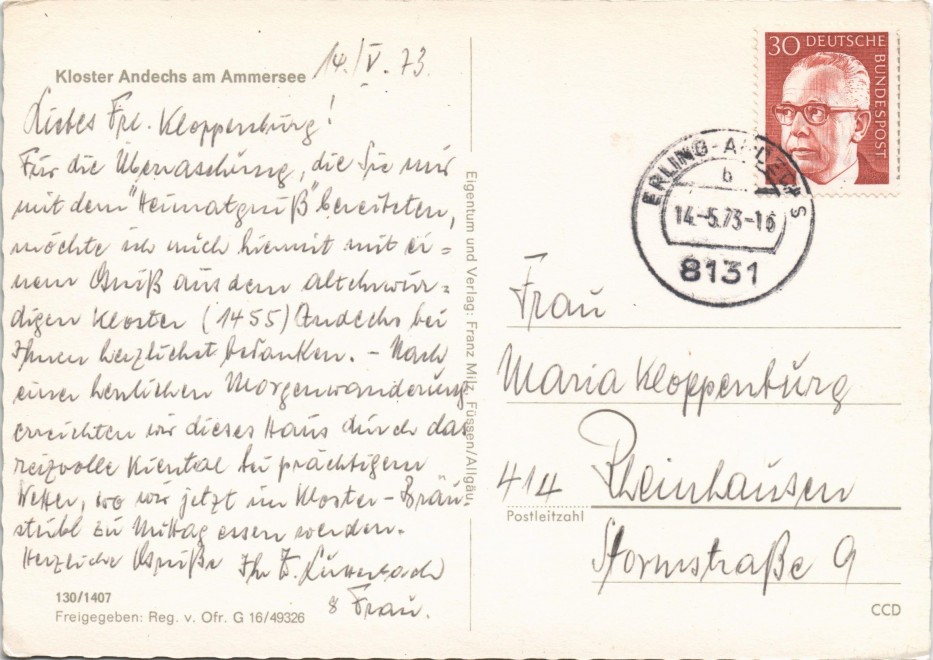 Kloster Andechs am Ammersee
14./V. 73.
Liebes Frl. Kloppenburg!
Für die Überraschung, die Sie mir
mit dem "Heimatgruß" bereiteten,
möchte ich mich hiermit mit ei=
nem Gruß aus dem altehrwür=
digen Kloster (1455) Andechs bei
Ihnen herzlichst bedanken. – Nach
einer herrlichen Morgenwanderung
erreichten wir dieses Haus durch das
reizvolle Kiental bei prächtigem
Wetter, wo wir jetzt im Kloster-Bräu-
stübl zu Mittag essen werden.
Herzliche Grüße Ihr
& Frau.
130/1407
Freigegeben: Reg. v. Ofr. G 16/49326
Eigentum und Verlag: Franz Milz, Füssen/Allgäu.
30 DEUTSCHE
BUNDESPOST
ERLING-ANDECHS
b
14.-5.73-16
8131
Frau
Maria Kloppenburg
414 Rheinhausen
Postleitzahl
Stormstraße 9
CCD